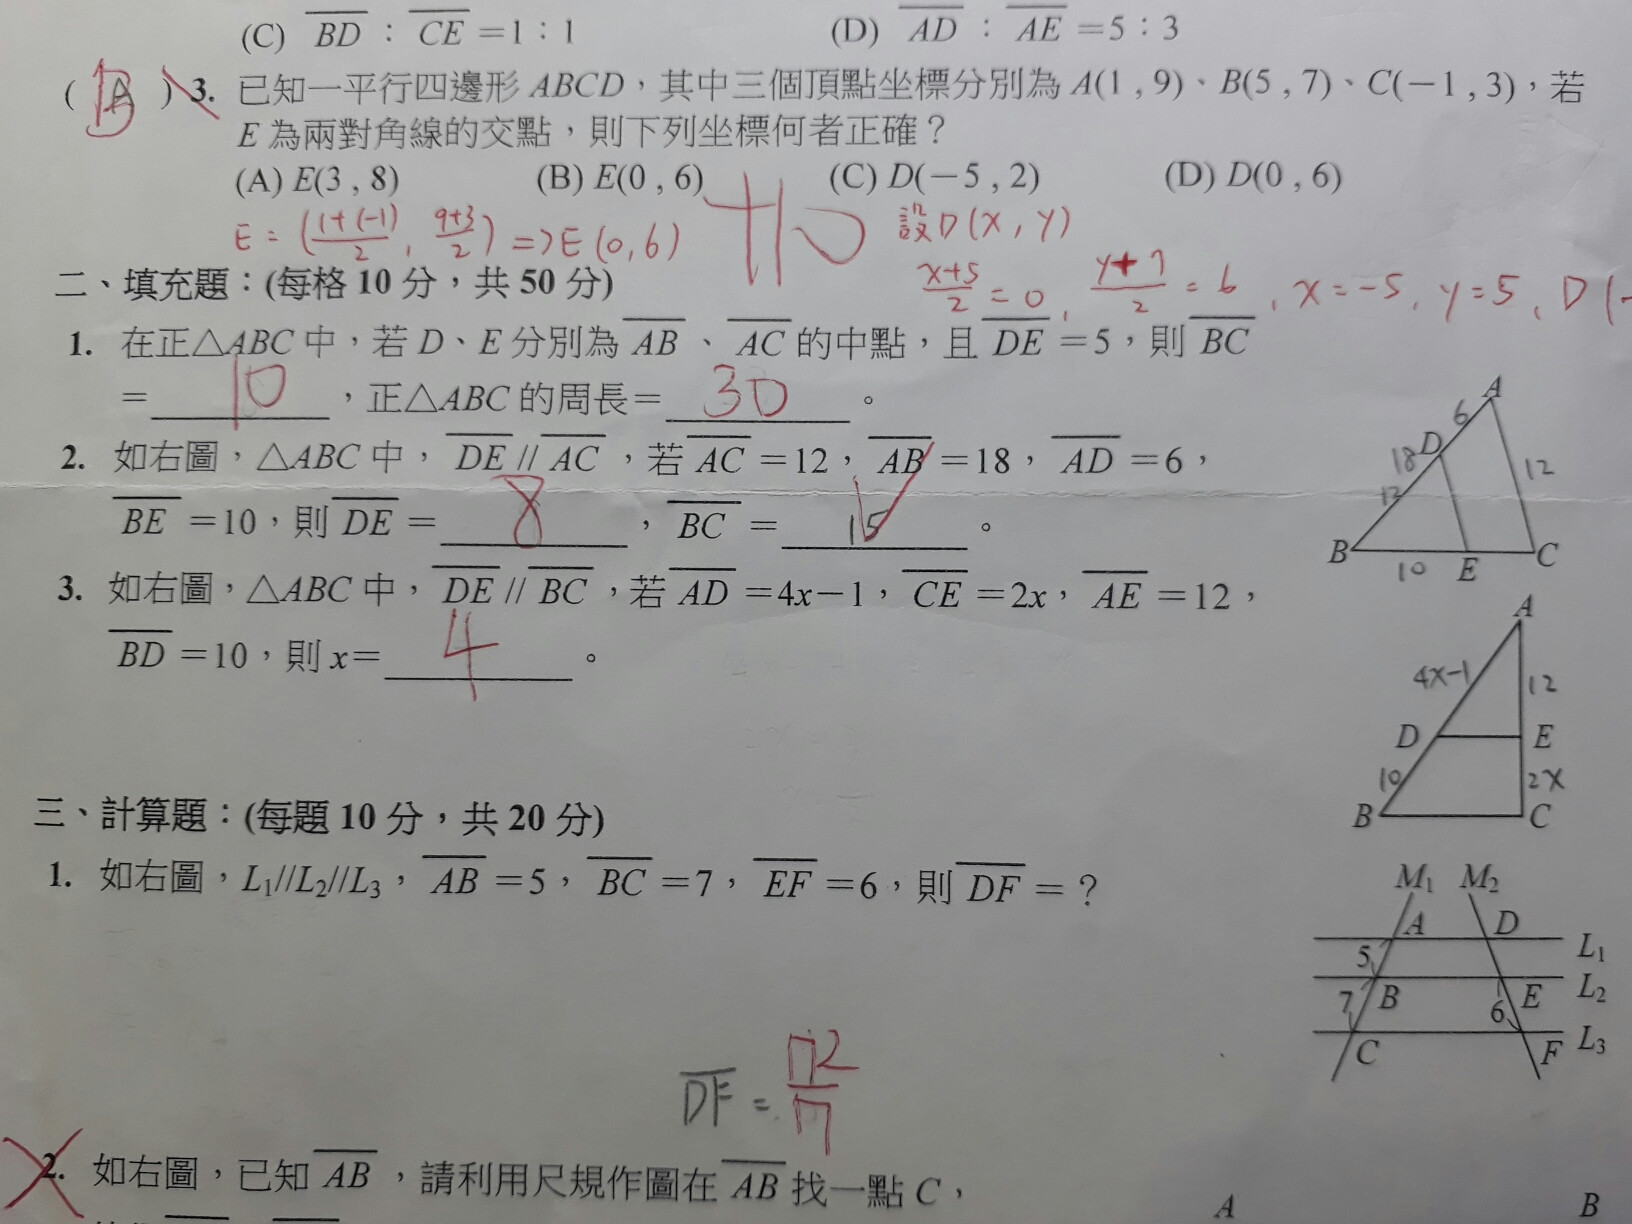 (C) BD：CE＝1：1 (D) AD：AE＝5：3
( B ) 3. 已知一平行四邊形 ABCD，其中三個頂點坐標分別為 A(1 , 9)、B(5 , 7)、C(−1 , 3)，若
E 為兩對角線的交點，則下列坐標何者正確？
(A) E(3 , 8) (B) E(0 , 6) (C) D(−5 , 2) (D) D(0 , 6)
E = (1+(-1)/2, 9+3/2) => E(0,6) 設D(x, y)
x+5/2 = 0, y+7/2 = 6, x=-5, y=5, D(-
二、填充題：(每格 10 分，共 50 分)
1. 在正△ABC 中，若 D、E 分別為 AB、AC 的中點，且 DE＝5，則 BC
＝ 10 ，正△ABC 的周長＝ 30 。
2. 如右圖，△ABC 中，DE // AC，若 AC＝12，AB＝18，AD＝6，
BE＝10，則 DE＝ 8 ，BC＝ 15 。
3. 如右圖，△ABC 中，DE // BC，若 AD＝4x−1，CE＝2x，AE＝12，
BD＝10，則 x＝ 4 。
A
6
D
18
12
12
B
10 E
C
A
4x-1
12
D
E
10
2x
B
C
三、計算題：(每題 10 分，共 20 分)
1. 如右圖，L1//L2//L3，AB＝5，BC＝7，EF＝6，則 DF＝？
M1 M2
A D
L1
5
B E L2
7 6
C F L3
DF = 72/7
2. 如右圖，已知 AB，請利用尺規作圖在 AB 找一點 C，
A B